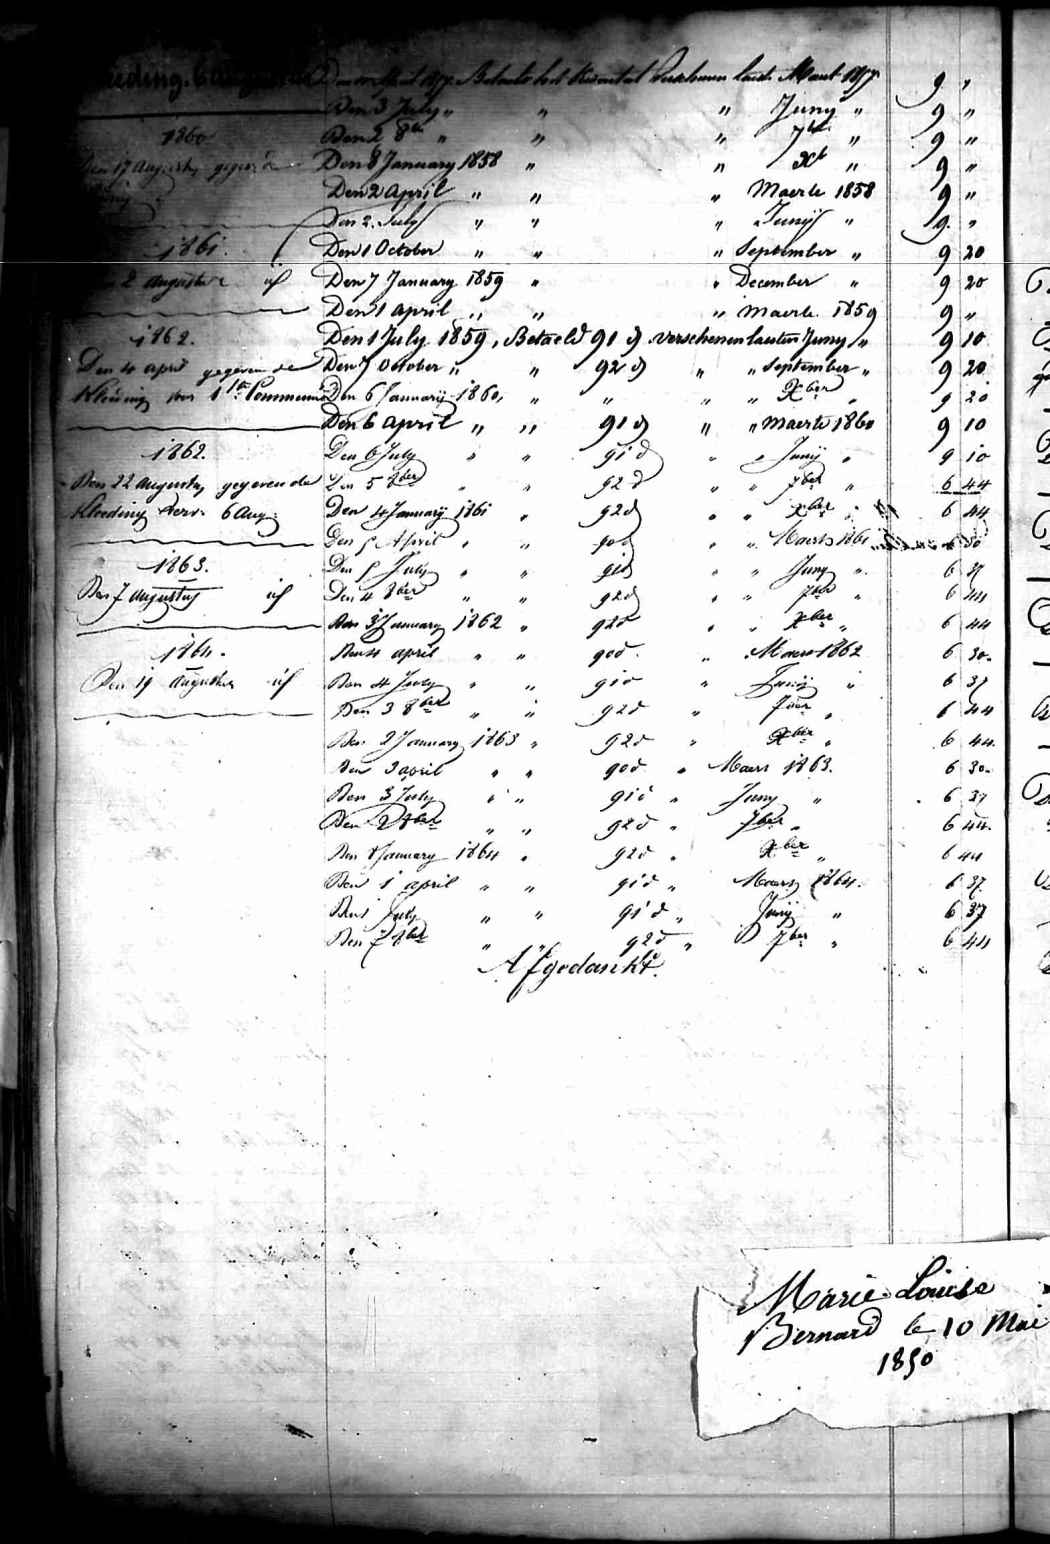 Den April 1857 Betaelt het Kwartal Verschenen laesten Maert 1857 9 "
Den 3 July " " " Juny " 9 "
1860 Den 2 8br " " " 7br " 9 "
Den 17 Augusty gegeven de Den 8 January 1858 " " Xbr " 9 "
Den 2 April " " " Maerte 1858 9 "
Den 2 July " " " Junij " 9 "
1861. Den 1 October " " " September " 9 20
2 Augusti id Den 7 January 1859 " " December " 9 20
Den 1 April " " " Maerte 1859 9 "
1862. Den 1 July 1859, Betaeld 91 d verschenen laesten Juny " 9 10
Den 4 april gegeven de Den 7 October " " 92 d " " September " 9 20
Kleeding voor 1ste Communie Den 6 Januarij 1860, " " " " Xber " 9 20
Den 6 April " " 91 d " " Maerte 1860 9 10
1862. Den 6 July " " 91 d " " Junij " 9 10
Den 22 Augusty gegeven de Den 5 8ber " " 92 d " " 7ber " 6 44
Kleeding 6 Aug. Den 4 January 1861 " 92 d " " Xber " 6 44
Den 5 April " " 90 d " " Maerts 1861 6 30
1863. Den 5 July " " 91 d " " Juny " 6 37
Den 7 Augustus id Den 4 8ber " " 92 d " " 7ber " 6 44
Den 3 January 1862 " 92 d " " Xber " 6 44
1864. Den 4 april " " 90 d " Maers 1862 6 30
Den 19 Augustus id Den 4 July " " 91 d " Junij " 6 37
Den 3 8ber " " 92 d " 7ber " 6 44
Den 2 January 1863 " 92 d " Xber " 6 44
Den 3 april " " 90 d " Maers 1863. 6 30
Den 3 July " " 91 d " Juny " 6 37
Den 2 8ber " " 92 d " 7ber " 6 44
Den 8 January 1864 " 92 d " Xber " 6 44
Den 1 april " " 91 d " Maers 1864. 6 37
Den 1 July " " 91 d " Junij " 6 37
Den 7 8ber " 92 d " 7ber " 6 44
Afgedankt.
Marie Louise
Bernard le 10 Mai
1850